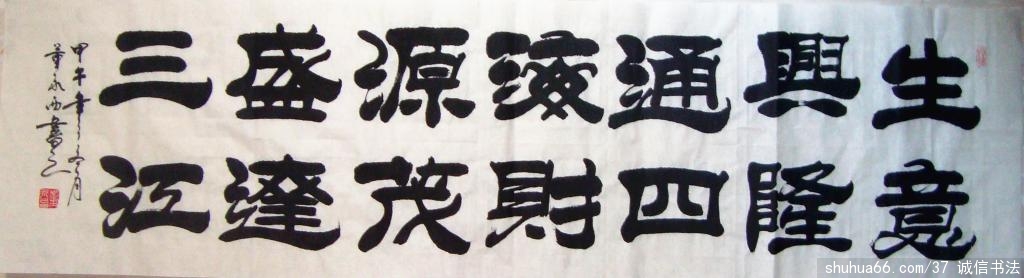 生意
興隆
通四
海財
源茂
盛達
三江
甲午年冬月
書
shuhua66.com/37 诚信书法